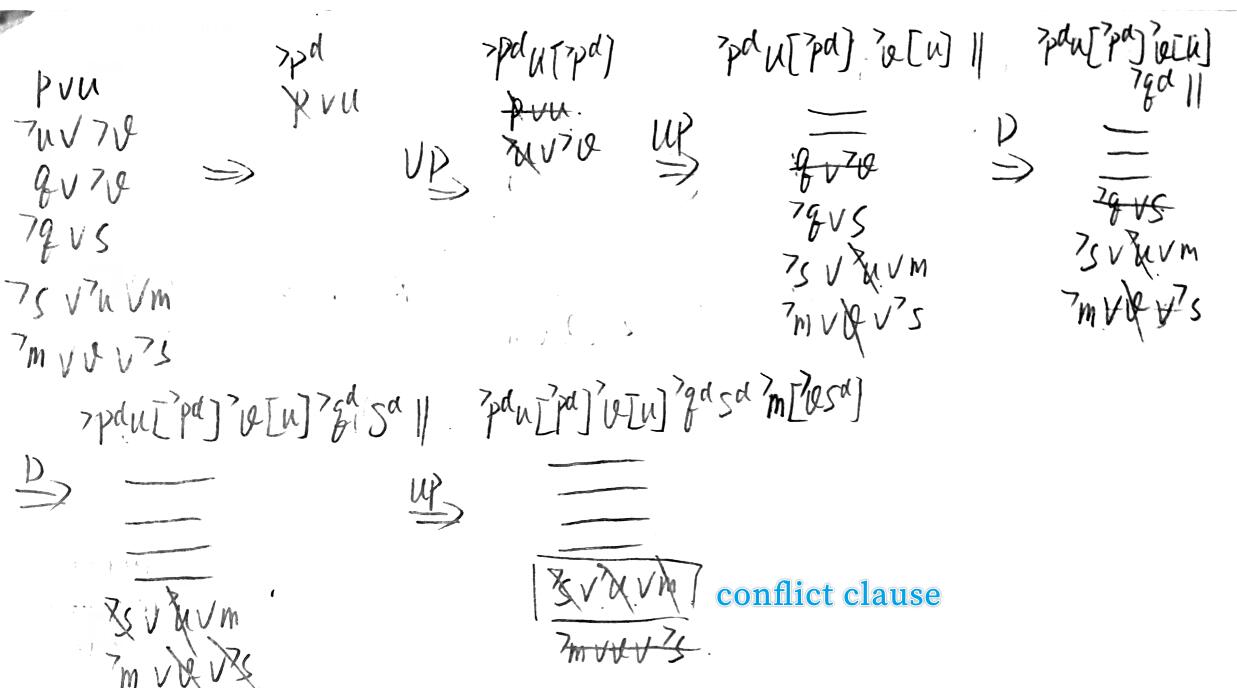 p∨u
¬u∨¬v
q∨¬v
¬q∨s
¬s∨¬u∨m
¬m∨v∨¬s
⇒
¬pᵈ
p∨u
UP
⇒
¬pᵈu[¬pᵈ]
p∨u
¬u∨¬v
UP
⇒
¬pᵈu[¬pᵈ] ¬v[u] ||
q∨¬v
¬q∨s
¬s∨¬u∨m
¬m∨v∨¬s
D
⇒
¬pᵈu[¬pᵈ]¬v[u]
¬qᵈ ||
¬q∨s
¬s∨¬u∨m
¬m∨v∨¬s
D
⇒
¬pᵈu[¬pᵈ]¬v[u]¬qᵈsᵈ ||
¬s∨¬u∨m
¬m∨v∨¬s
UP
⇒
¬pᵈu[¬pᵈ]¬v[u]¬qᵈsᵈ¬m[¬vsᵈ]
¬s∨¬u∨m conflict clause
¬m∨v∨¬s